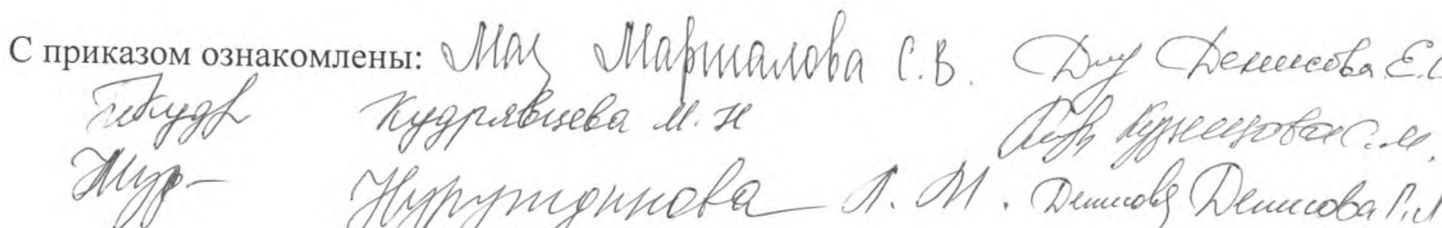 С приказом ознакомлены: Маршалова С.В. Денисова Е.
Кудрявцева М.Н Кузнецова С.М.
Нуруждинова Л.М. Денисова Г.Л